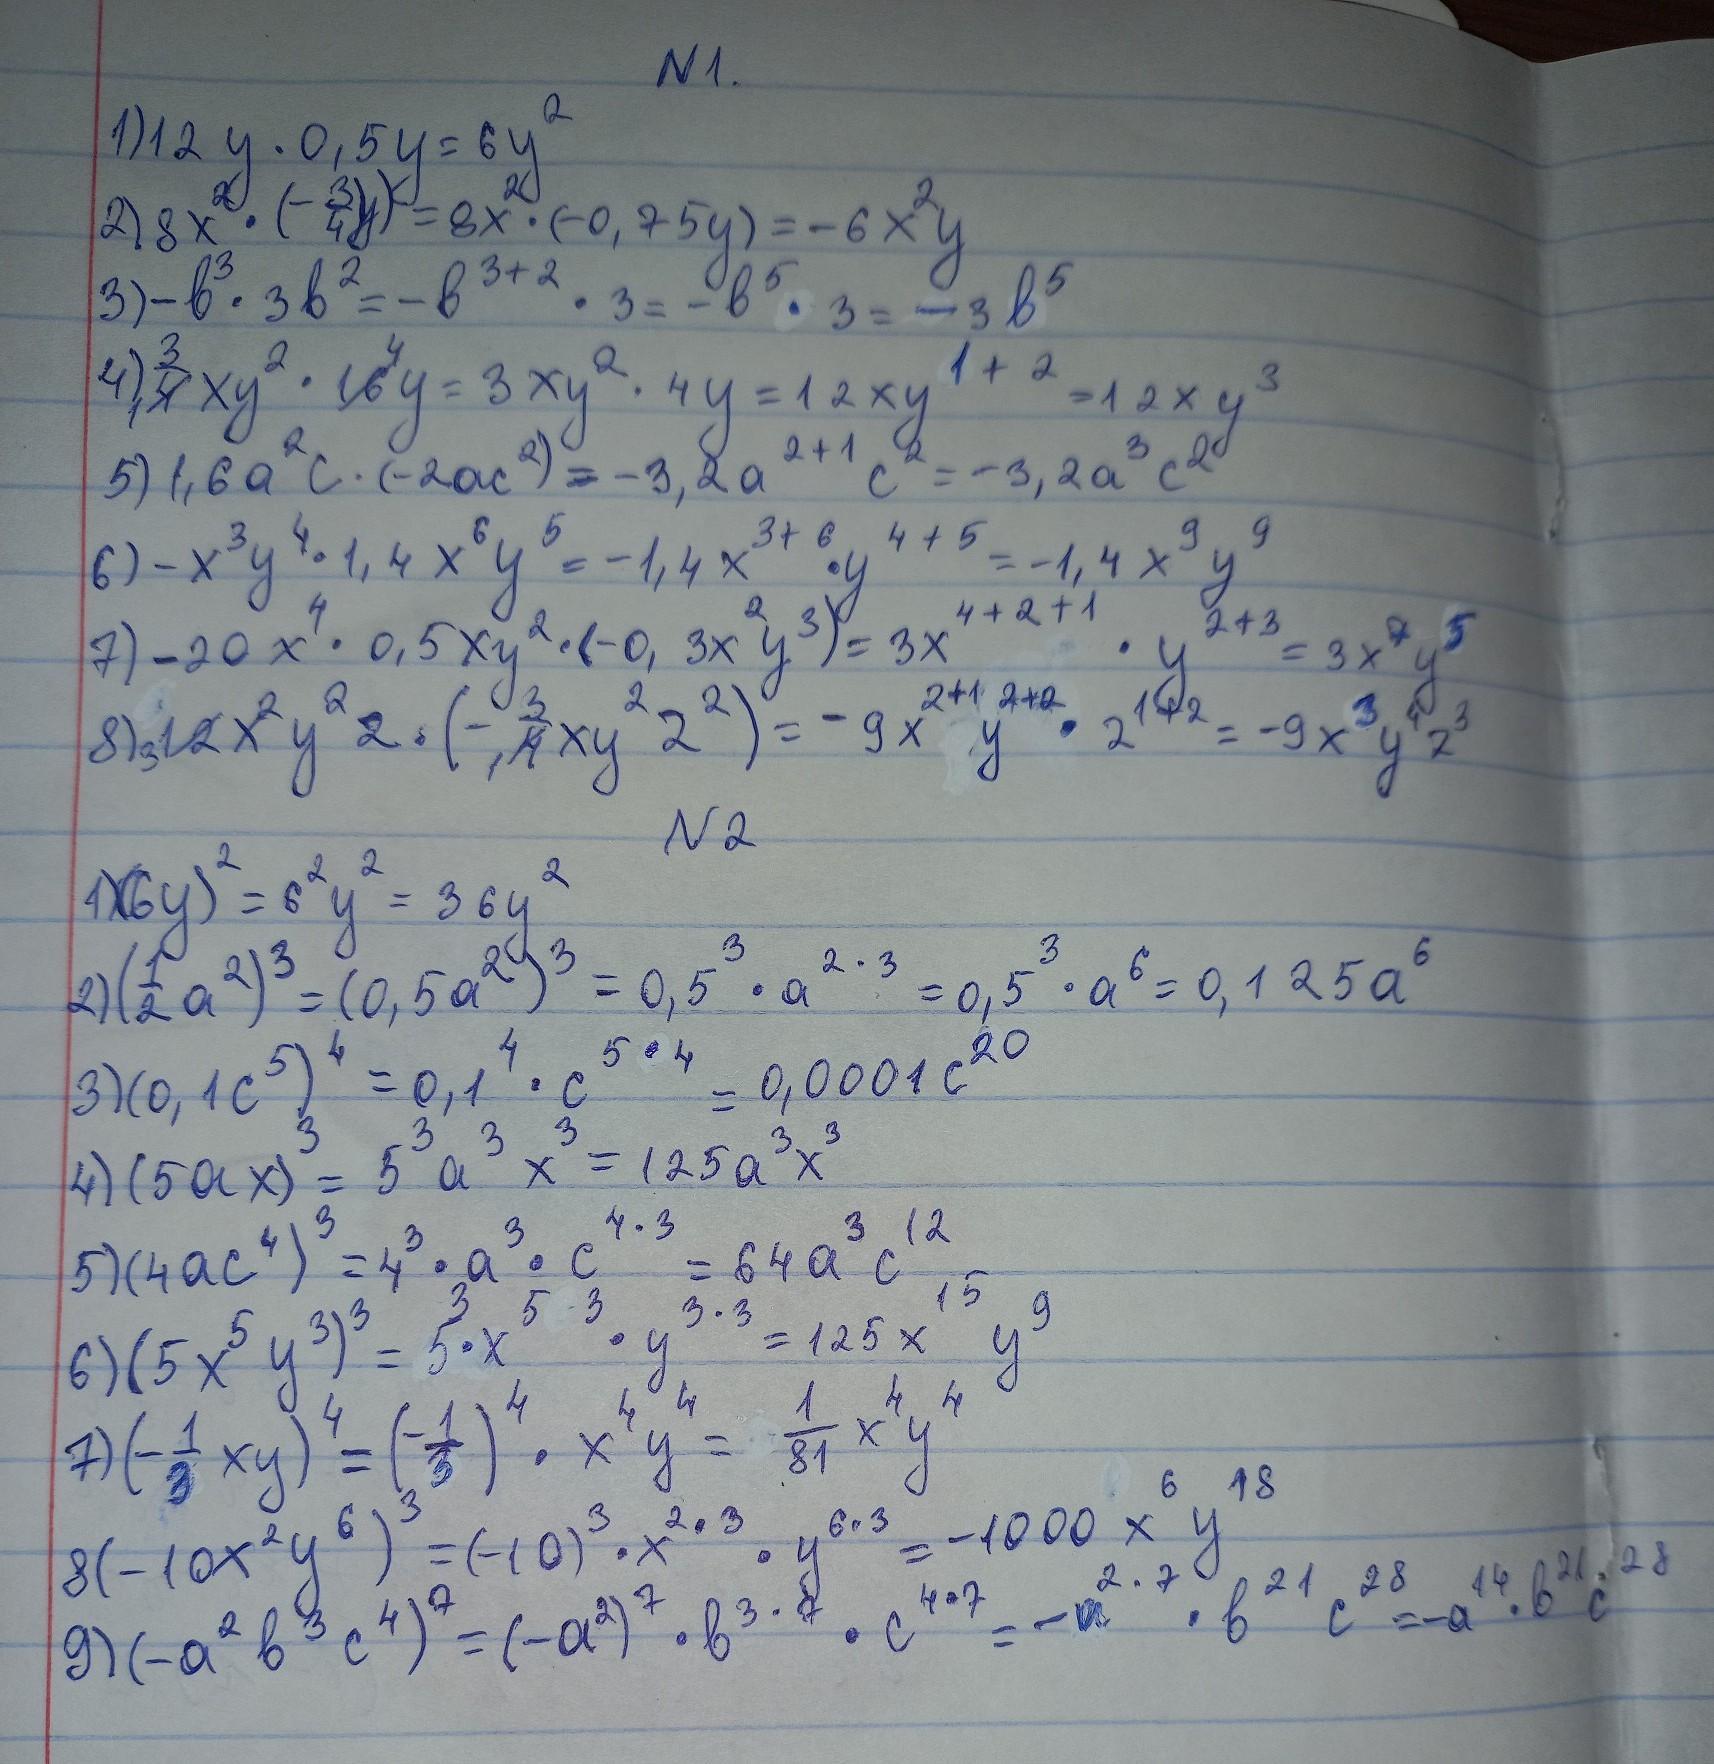 N1.
1) 12y · 0,5y = 6y²
2) 8x² · (-3/4y) = 8x² · (-0,75y) = -6x²y
3) -b³ · 3b² = -b³⁺² · 3 = -b⁵ · 3 = -3b⁵
4) 3/4 xy² · 16⁴y = 3xy² · 4y = 12xy¹⁺² = 12xy³
5) 1,6a²c · (-2ac²) = -3,2a²⁺¹c² = -3,2a³c²
6) -x³y⁴ · 1,4x⁶y⁵ = -1,4x³⁺⁶ · y⁴⁺⁵ = -1,4x⁹y⁹
7) -20x⁴ · 0,5xy² · (-0,3x²y³) = 3x⁴⁺²⁺¹ · y²⁺³ = 3x⁷y⁵
8) ₃12x²y²z · (-₁3/4xy²z²) = -9x²⁺¹y²⁺² · z¹⁺² = -9x³y⁴z³
N2
1) (6y)² = 6²y² = 36y²
2) (1/2a²)³ = (0,5a²)³ = 0,5³ · a²·³ = 0,5³ · a⁶ = 0,125a⁶
3) (0,1c⁵)⁴ = 0,1⁴ · c⁵·⁴ = 0,0001c²⁰
4) (5ax)³ = 5³a³x³ = 125a³x³
5) (4ac⁴)³ = 4³ · a³ · c⁴·³ = 64a³c¹²
6) (5x⁵y³)³ = 5³ · x⁵·³ · y³·³ = 125x¹⁵y⁹
7) (-1/3xy)⁴ = (-1/3)⁴ · x⁴y⁴ = 1/81x⁴y⁴
8 (-10x²y⁶)³ = (-10)³ · x²·³ · y⁶·³ = -1000x⁶y¹⁸
9) (-a²b³c⁴)⁷ = (-a²)⁷ · b³·⁷ · c⁴·⁷ = -a²·⁷ · b²¹c²⁸ = -a¹⁴ · b²¹c²⁸